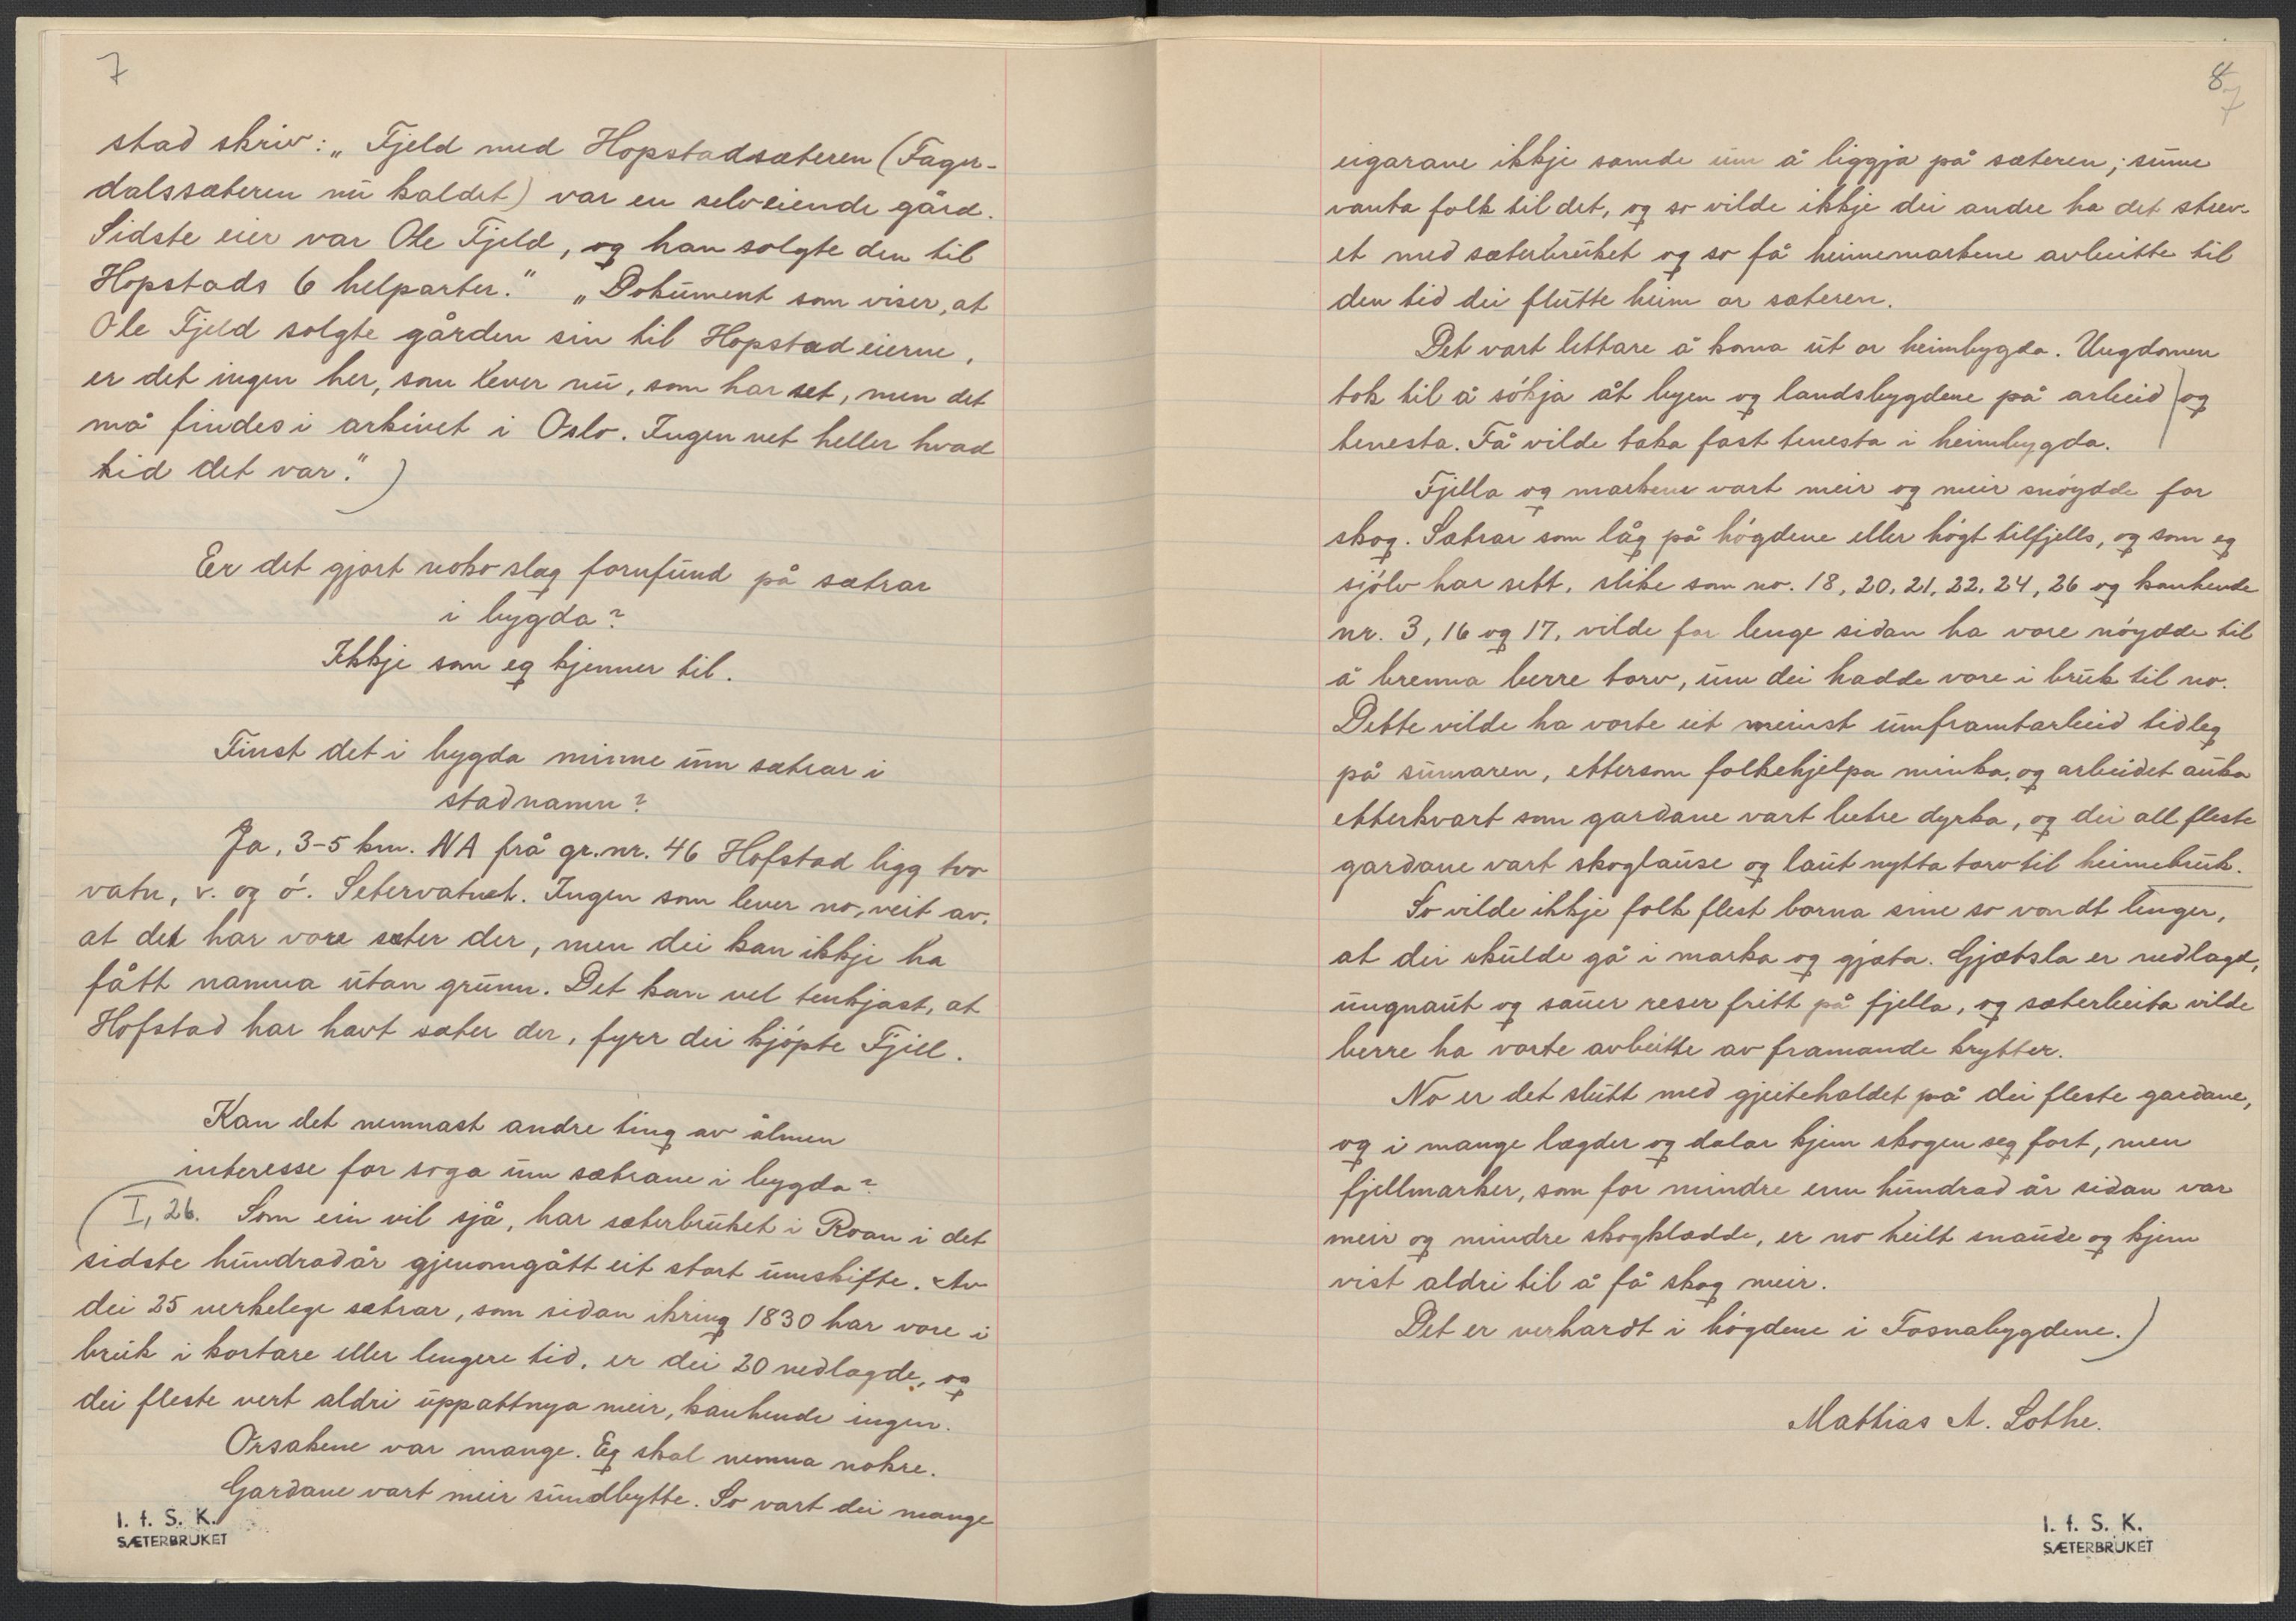 7
stad skriv: „Fjeld med Hopstadsæteren (Fager-
dalssæteren nu kaldet) var en selveiende gård.
Sidste eier var Ole Fjeld, og han solgte den til
Hopstads 6 helparter." „Dokument som viser, at
Ole Fjeld solgte gården sin til Hopstadeierne,
er det ingen her, som lever nu, som har set, men det
må findes i arkivet i Oslo. Ingen vet heller hvad
tid det var.")
Er det gjort noko slag fornfund på sætrar
i bygda?
Ikkje som eg kjenner til.
Finst det i bygda minne um sætrar i
stadnamn?
Ja, 3-5 km. NA frå gr.nr. 46 Hofstad ligg tvo
vatn, v. og ó. Setervatnet. Ingen som lever no, veit av,
at det har vore sæter der, men dei kan ikkje ha
fått namna utan grunn. Det kan vel tenkjast, at
Hofstad har havt sæter der, fyrr dei kjópte Fjell.
Kan det nemnast andre ting av ålmen
interesse for soga um sætrane i bygda?
(I, 26. Som ein vil sjå, har sæterbruket i Roan i det
sidste hundradår gjenomgått eit stort umskifte. Av
dei 25 verkelege sætrar, som sidan ikring 1830 har vore i
bruk i kortare eller lengere tid, er dei 20 nedlagde, og
dei fleste vert aldri uppattnya meir, kanhende ingen.
Orsakene var mange. Eg skal nemna nokre.
Gardane vart meir sundbytte. So vart dei mange
I. f. S. K.
SÆTERBRUKET
8
7
eigarane ikkje samde um å liggja på sæteren; sume
vanta folk til det, og so vilde ikkje dei andre ha det strev-
et med sæterbruket og so få heimemarkene avbeitte til
den tid dei flutte heim or sæteren.
Det vart lettare å koma ut or heimbygda. Ungdomen
tok til å sókja åt byen og landsbygdene på arbeid og
tenesta. Få vilde taka fast tenesta i heimbygda.
Fjella og markene vart meir og meir snóydde for
skog. Sætrar som låg på hógdene eller hógt tilfjells, og som eg
sjólv har sett, slike som no. 18, 20, 21, 22, 24, 26 og kanhende
nr. 3, 16 og 17, vilde for lenge sidan ha vore nóydde til
å brenna berre torv, um dei hadde vore i bruk til no.
Dette vilde ha vorte eit meinst umframtarbeid tidleg
på sumaren, ettersom folkehjelpa minka, og arbeidet auka
etterkvart som gardane vart betre dyrka, og dei all fleste
gardane vart skoglause og laut nytta torv til heimebruk.
So vilde ikkje folk flest borna sine so vondt lenger,
at dei skulde gå i marka og gjæta. Gjætsla er nedlagd,
ungnaut og sauer reser fritt på fjella, og sæterbeita vilde
berre ha vorte avbeitte av framande krytter.
No er det slutt med gjeiteholdet på dei fleste gardane,
og i mange lægder og dalar kjem skogen seg fort, men
fjellmarker, som for mindre enn hundrad år sidan var
meir og mindre skogklædde, er no heilt snaude og kjem
vist aldri til å få skog meir.
Det er verhardt i hógdene i Fosnabygdene.)
Mathias A. Lothe.
I. f. S. K.
SÆTERBRUKET